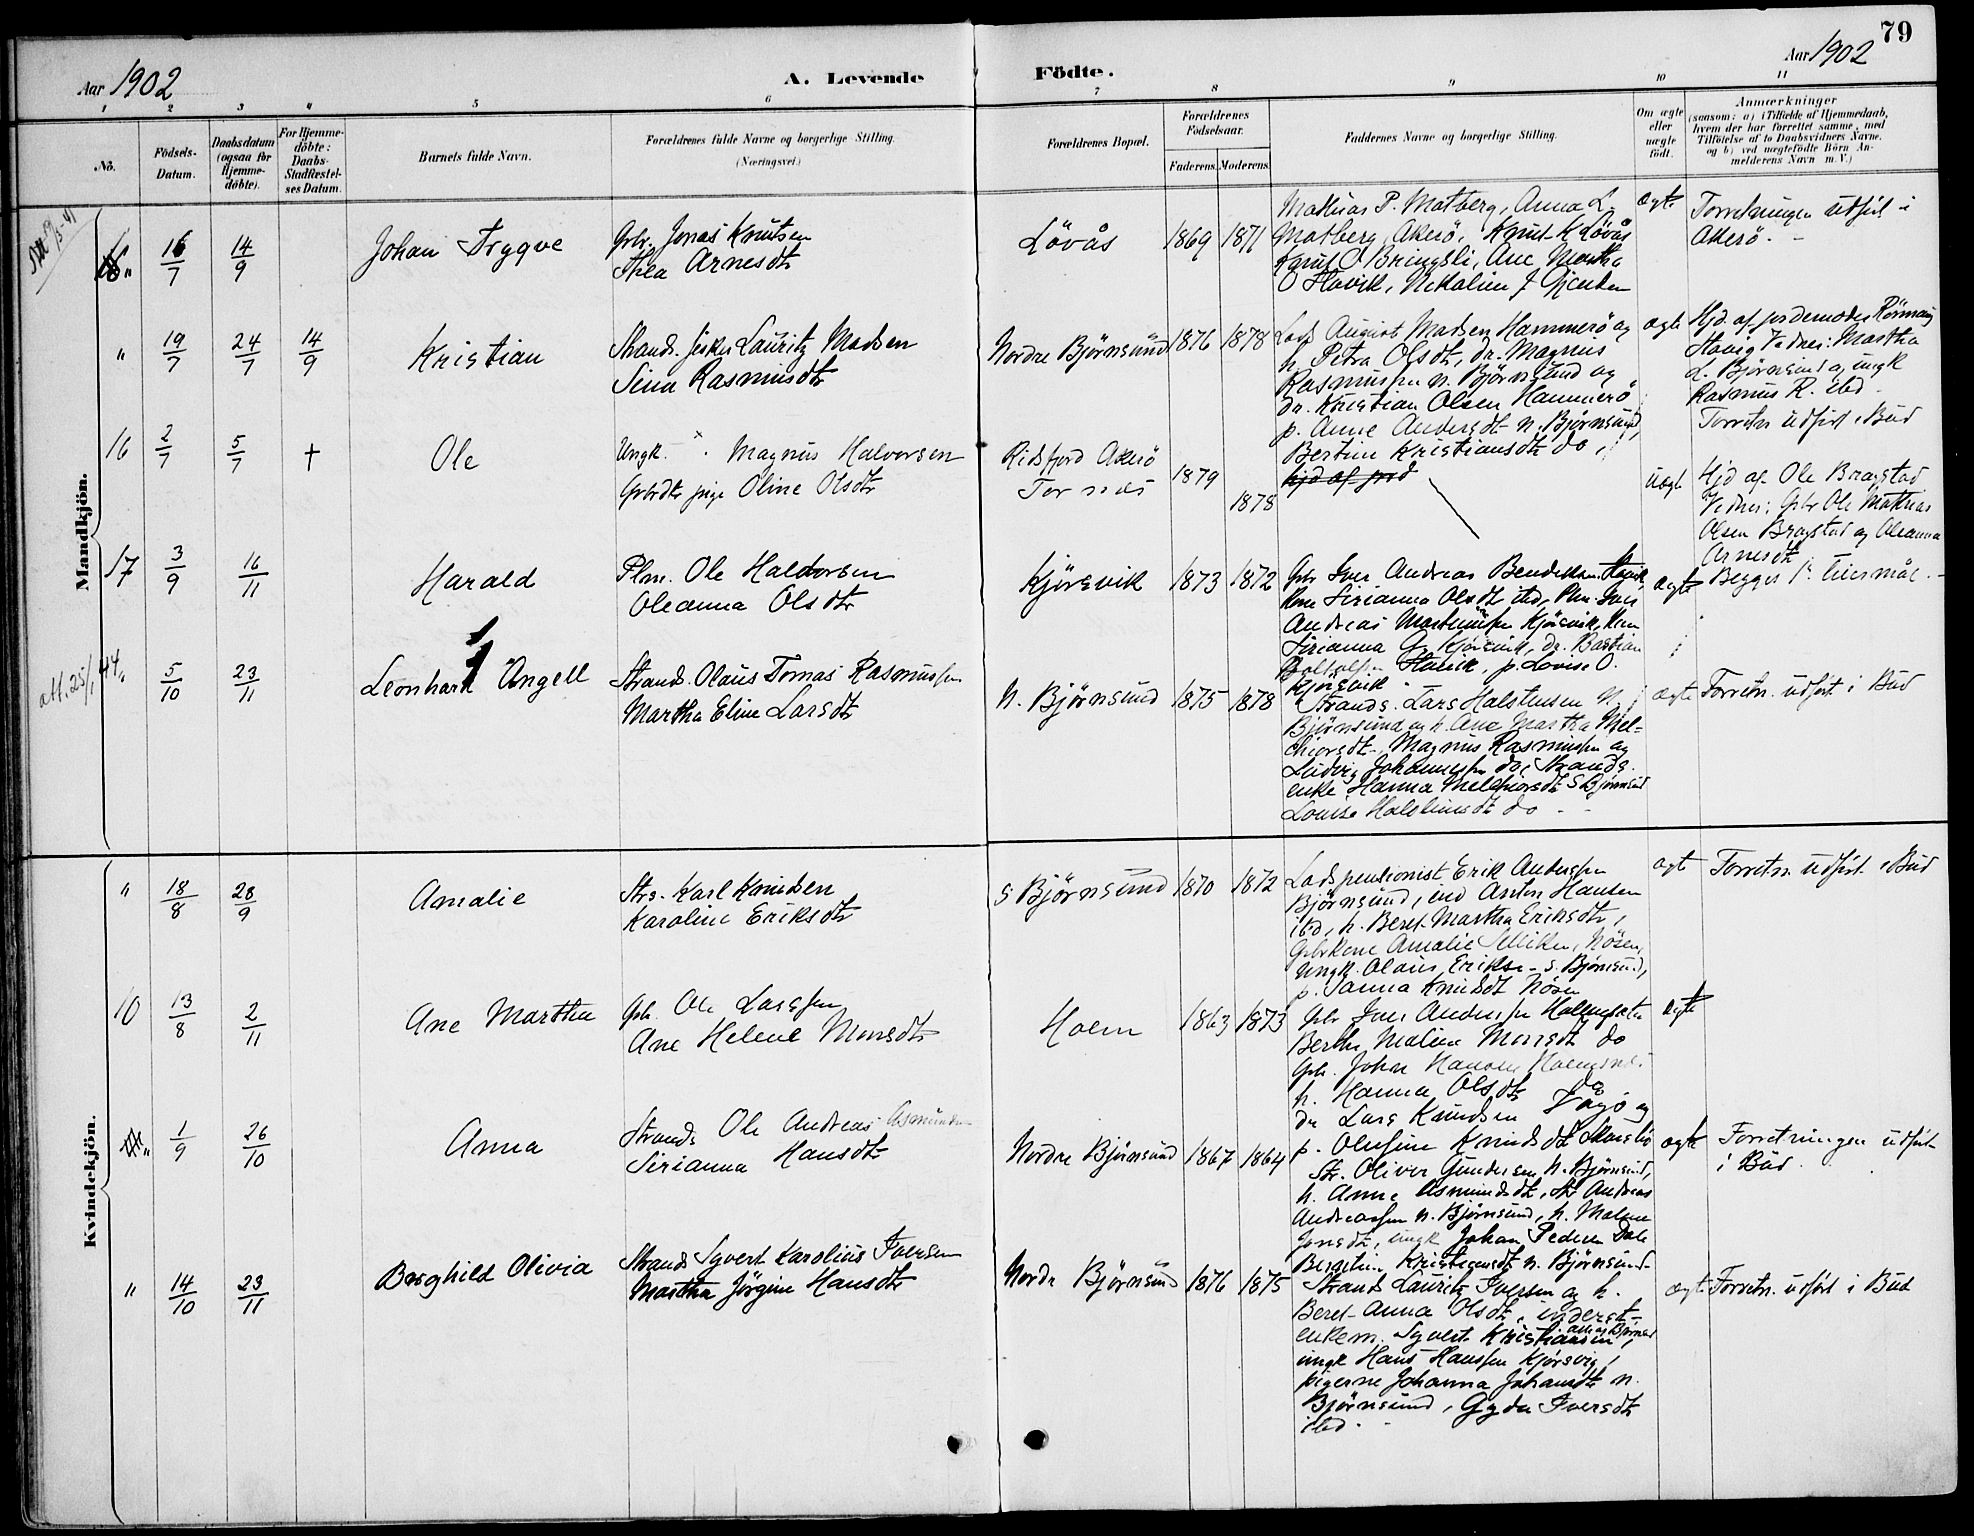 79
Aar 1902
A. Levende Födte.
Aar 1902
1 2 3 4 5 6 7 8 9 10 11
No.
Födsels-Datum.
Daabsdatum (ogsaa for Hjemme-döbte).
For Hjemme-döbte: Daabs-Stadfæstel-ses Datum.
Barnets fulde Navn.
Forældrenes fulde Navne og borgerlige Stilling.
(Næringsvei.)
Forældrenes Bopæl.
Forældrenes Födselsaar.
Faderens. Moderens.
Faddernes Navne og borgerlige Stilling.
Om ægte eller uægte födt.
Anmærkninger
(saasom: a) i Tilfælde af Hjemmedaab, hvem der har forrettet samme, med Tilföielse af to Daabsvidners Navne, og b) ved uægtefödte Börn An-melderens Navn m. V.)
Mandkjön.
16/7 14/9 Johan Trygve
Gbr. Jonas Knutsen
Thea Arnesdtr
Lövås 1869 1871
Mathias P. Matberg, Anna L.
Matberg, Akerö, Knut K Lövås
Knut O Bringsli, Ane Martha
O Havik, Nikoline J
ægte
Forretningen udfört i
Akerö. -
" 19/7 24/7 14/9 Kristian
Strands. fisker Lauritz Madsen
Sina Rasmusdtr
Nordre Björnsund 1876 1878
Lods August Madsen Hammerö og
h. Petra Olsdtr, dr. Magnus
Rasmussen n. Björnsund og
dr. Kristian Olsen Hammerö
p. Anne Andersdtr n. Björnsund,
Bertine Kristiansdtr do,
ægte
Hjd. af jordemoder
Havig Vidner: Martha
L. Björnsund og ungk
Rasmus R. ibd -
Forretn udfört i Bud
16 2/7 5/7 + Ole
Ungk. Magnus Halvorsen
Gbrdtr pige Oline Olsdtr
Ridsfjord Akerö 1879
Tornes 1878
hjd af jord
uægt
Hjd af Ole Bragstad
Vidner: Gbr Ole Mathias
Olsen Bragstad og Oleanna
Arnesdtr
Begges 1ste Leiermål. -
17 3/9 16/11 Harald
Plm. Ole Haldorsen
Oleanna Olsdtr
Kjörsvik 1873 1872
Gbr Iver Andreas Bendiksen Havik,
Kone Sirianna Olsdtr ibd, Plm. Iver
Andreas Martinussen Kjörsvik, Kone
Sirianna G. Kjörsvik, dr. Bastian
Havik, p. Lovise O.
Kjörsvik
ægte
att. 25/1 44
" 5/10 23/11 Leonhard Angell
Strands. Olaus Tomas Rasmussen
Martha Eline Larsdtr
N. Björnsund 1875 1878
Strands. Lars Halstensen N.
Björnsund og h. Ane Martha Mel-
chiorsdtr, Magnus Rasmussen og
Ludvig Johannessen do, Strands.
enke Hanna Melchiorsdtr S Björnsund
Louise Halstensdtr do - -
ægte
Forretn. udfört i Bud
Kvindekjön.
" 18/8 28/9 Amalie
Strs. Karl Knudsen
Karoline Eriksdtr
S Björnsund 1870 1872
Lodspensionist Erik Anderssen
Björnsund, ind Anton Hansen
ibd, h. Beret Martha Eriksdtr,
Gbrkone Amalie Nösen,
ungk. Olaus Eriksen S. Björnsund,
p. Janna Knudsdtr Nösen
ægt
Forretn udfört i Bud
10 13/8 2/11 Ane Martha
Gbr. Ole Larssen
Ane Helene Monsdtr
Holm 1863 1873
Gbr Iver Anderssen
Berthe Maline Monsdtr do
Gbr. Johan Hansen
h. Hanna Olsdtr do
dr Lars Knudsen Vågö og
p. Olufine Knudsdtr
ægte
" 1/9 26/10 Anna
Strands Ole Andreas Asmundsen
Sirianna Hansdtr
Nordre Björnsund 1867 1864
Str. Oliver Gundersen n. Björnsund,
h. Anne Asmundsdtr, Str Andreas
Andreassen n. Björnsund, h. Malene
Jonsdtr, ungk Johan Pedersen Dale
Bergitine Kristiansdtr n. Björnsund
ægte
Forretningen udfört
i Bud.
" 14/10 23/11 Borghild Olivia
Strands Syvert Karolius Iversen
Martha Jörgine Hansdtr
Nordr Björnsund 1876 1875
Strands Lauritz Iversen og h.
Beret Anna Olsdtr, inderst-
enkem. Syvert Kristiansen,
ungk Hans Hanssen Kjörsvig,
pigerne Johanna Johansdtr n.
Björnsund, Gyda Iversdtr
ibd. -
ægte
Forretn. udfört i Bud